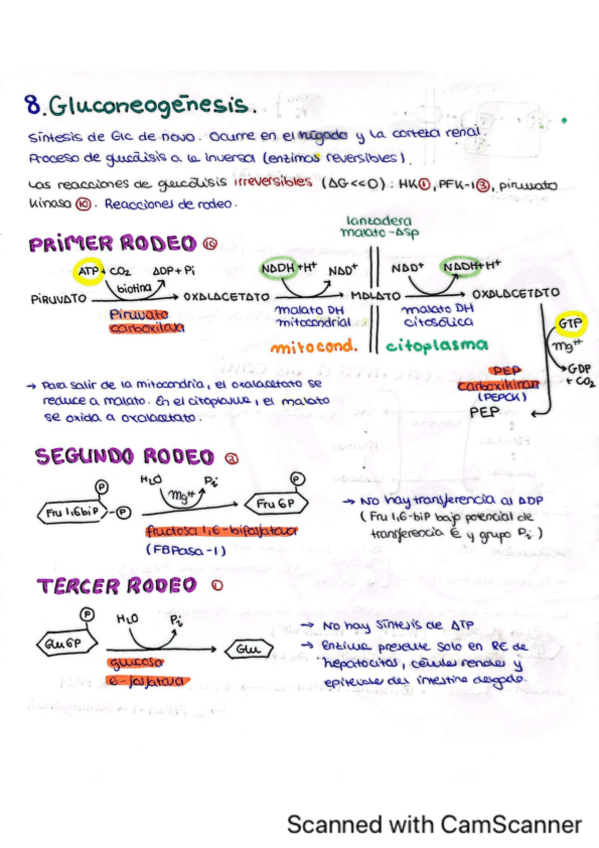 8. Gluconeogénesis.
Síntesis de Glc de novo. Ocurre en el hígado y la corteza renal.
Proceso de glucólisis a la inversa (enzimas reversibles).
Las reacciones de glucólisis irreversibles (ΔG<<0): HK①, PFK-1③, piruvato
kinasa ⑩. Reacciones de rodeo.
lanzadera
malato-Asp
PRIMER RODEO ⑩
ATP + CO2 ADP + Pi NADH + H+ NAD+ NAD+ NADH + H+
biotina
PIRUVATO → OXALACETATO → MALATO → OXALACETATO
Piruvato malato DH malato DH GTP
carboxilasa mitocondrial citosólica
mitocond. citoplasma Mg++
PEP → GDP
carboxikinasa + CO2
(PEPCK)
PEP
→ Para salir de la mitocondria, el oxalacetato se
reduce a malato. En el citoplasma, el malato
se oxida a oxalacetato.
SEGUNDO RODEO ③
P H2O Pi P
Mg++
Fru 1,6biP - P → Fru 6P
fructosa 1,6-bifosfatasa
(FBPasa-1)
→ No hay transferencia al ADP
(Fru 1,6-biP bajo potencial de
transferencia é y grupo Pi.)
TERCER RODEO ①
P H2O Pi
Glu 6P → Glu
glucosa
6-fosfatasa
→ No hay síntesis de ATP
→ Enzima presente solo en RE de
hepatocitos, células renales y
epiteliales del intestino delgado.
Scanned with CamScanner